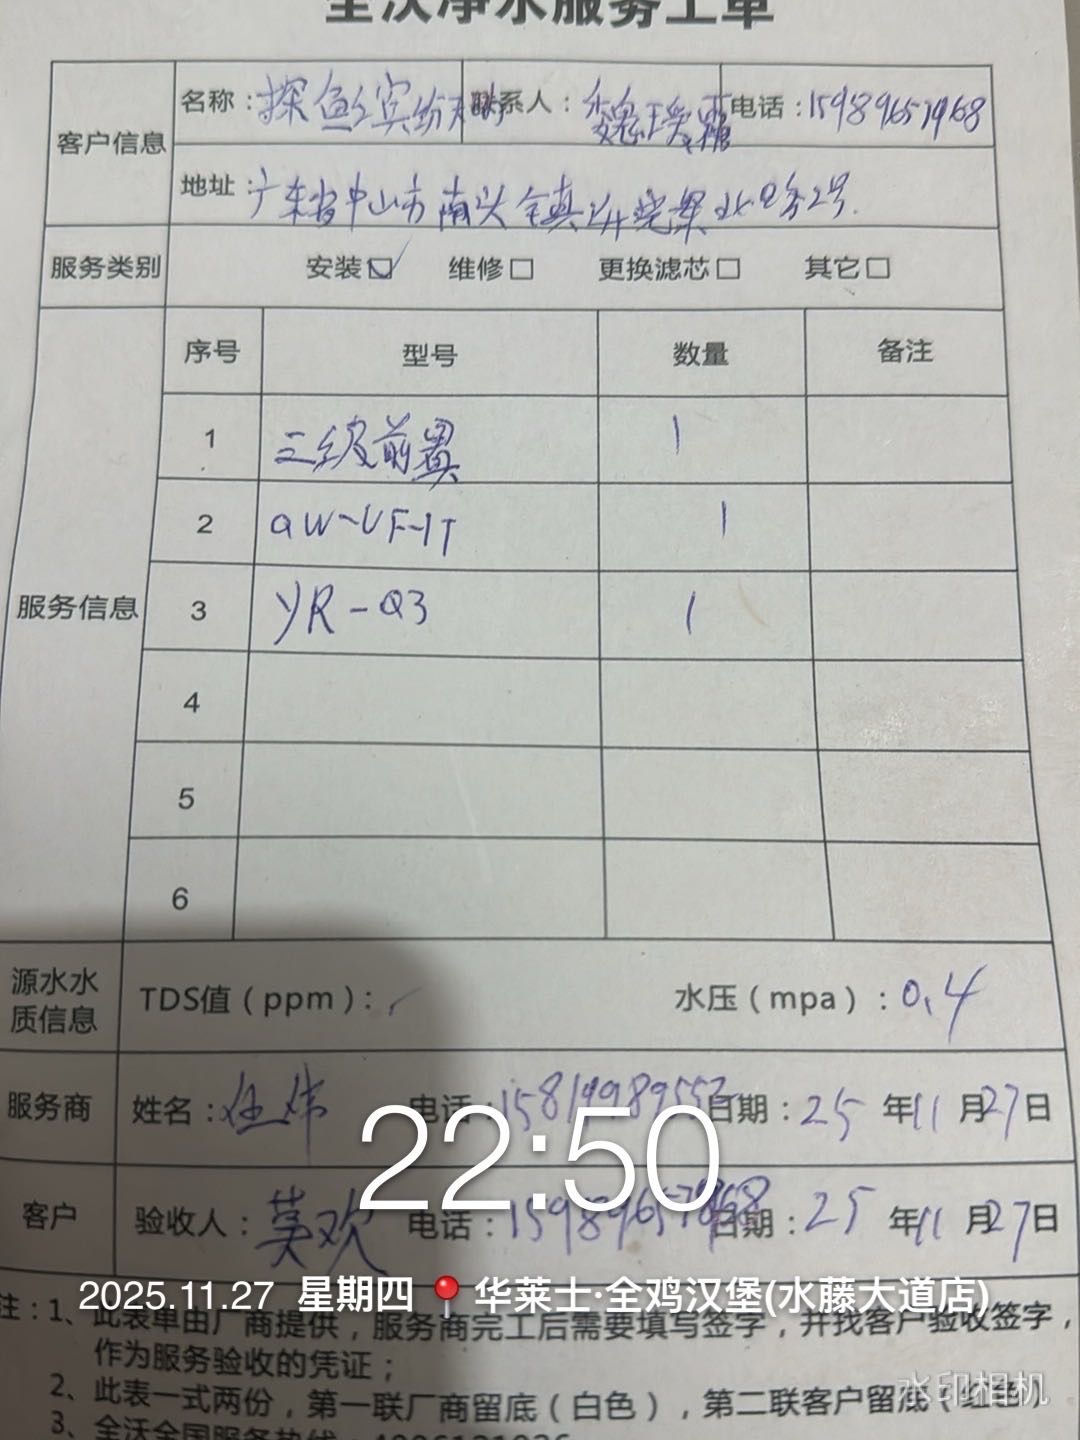 全沃净水服务工单
客户信息
名称：探鱼缤纷 联系人：魏瑷霜 电话：15989657968
地址：广东省中山市南头镇升 2号.
服务类别 安装☑ 维修□ 更换滤芯□ 其它□
服务信息
序号 型号 数量 备注
1 三级前置 1
2 QW-UF-1T 1
3 YR-Q3 1
4
5
6
源水水质信息 TDS值（ppm）： 水压（mpa）：0.4
服务商 姓名：任伟 电话：15819989552 日期：25年11月27日
22:50
客户 验收人：莫欢 电话： 日期：25年11月27日
2025.11.27 星期四 华莱士·全鸡汉堡(水藤大道店)
注：1、此表单由厂商提供，服务商完工后需要填写签字，并找客户验收签字，
作为服务验收的凭证；
2、此表一式两份，第一联厂商留底（白色），第二联客户留底（红色）
水印相机
3、全沃全国服务热线：